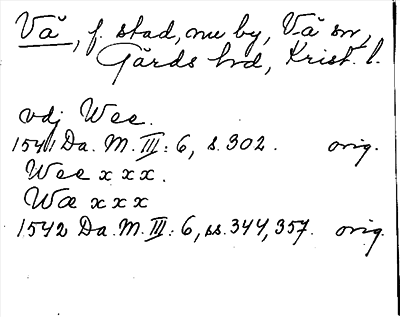 Vä, f. stad, nu by, Vä sn,
Gärds hd, Krist. l.
vdj Wee.
1541 Da. M. III: 6, s. 302. orig.
Wee x x x.
Wæ x x x
1542 Da. M. III: 6, ss. 344, 357. orig.